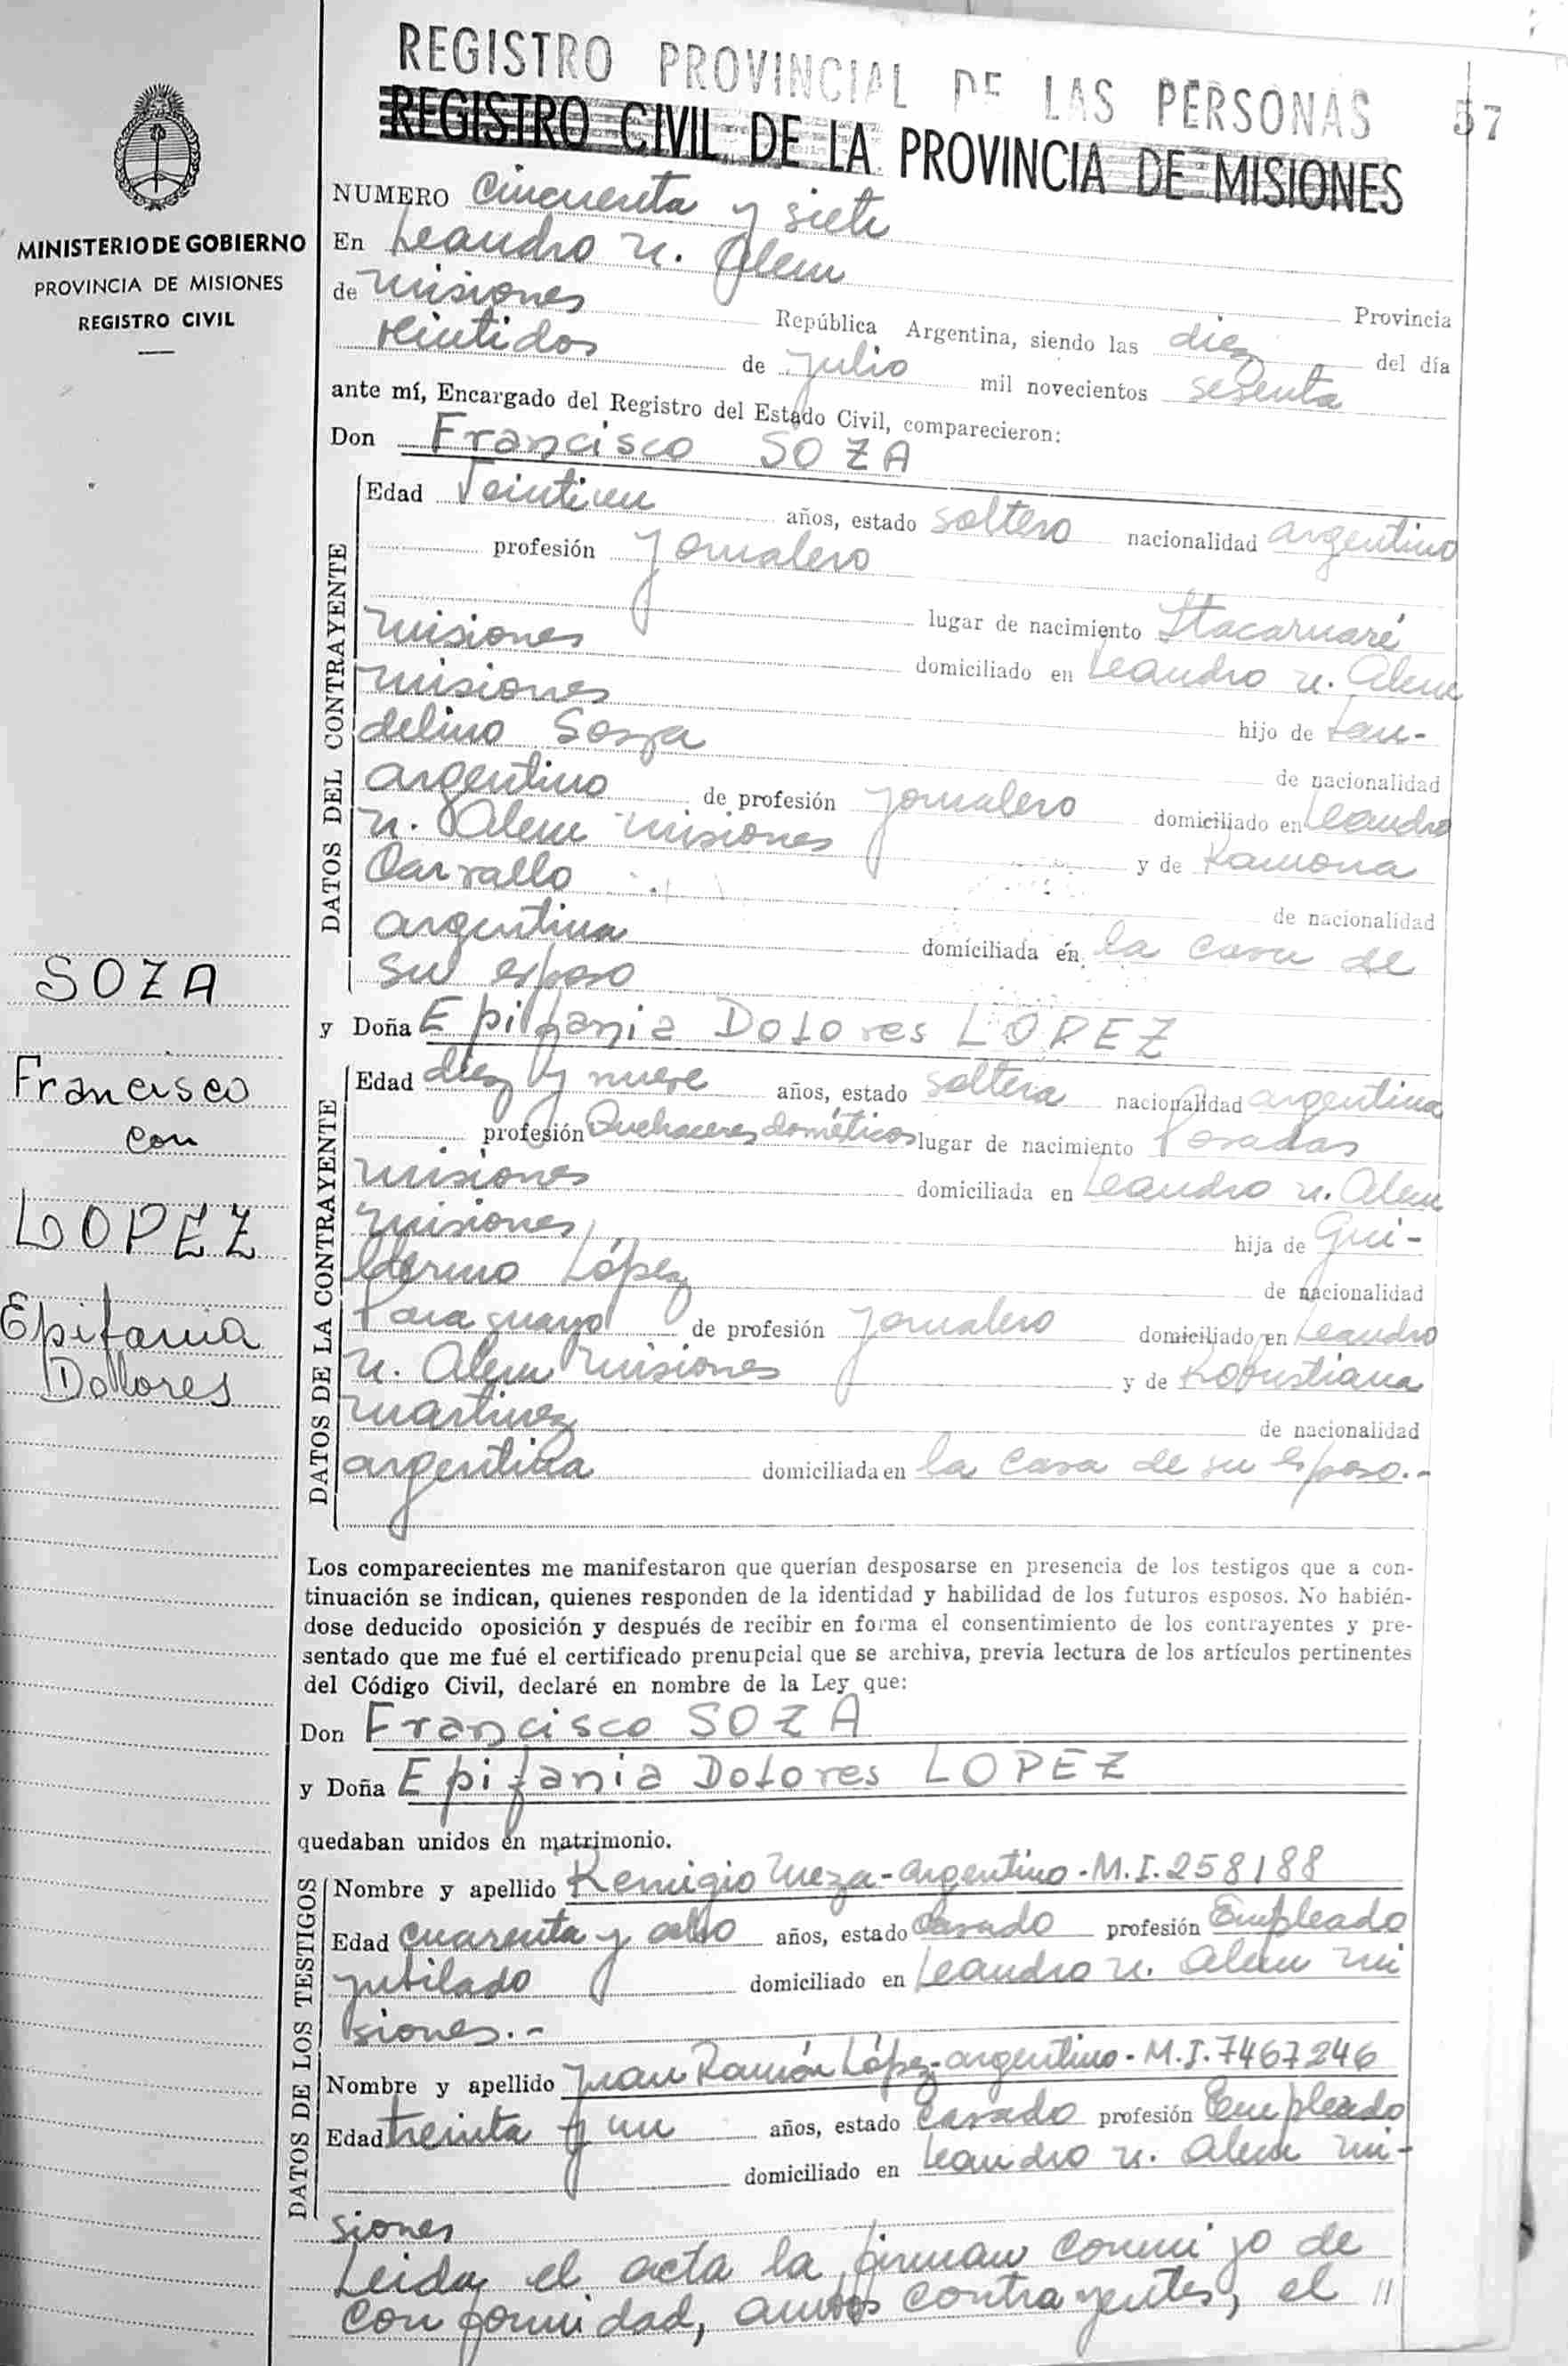 REGISTRO PROVINCIAL DE LAS PERSONAS 57
REGISTRO CIVIL DE LA PROVINCIA DE MISIONES
MINISTERIO DE GOBIERNO
PROVINCIA DE MISIONES
REGISTRO CIVIL
SOZA
Francisco
con
LOPEZ
Epifania
Dolores
NUMERO Cincuenta y siete
En Leandro N. Alem Provincia
de Misiones República Argentina, siendo las diez del día
veintidos de julio mil novecientos sesenta
ante mí, Encargado del Registro del Estado Civil, comparecieron:
Don Francisco SOZA
DATOS DEL CONTRAYENTE
Edad Veintiun años, estado soltero nacionalidad argentino
profesión Jornalero
lugar de nacimiento Itacaruaré
Misiones domiciliado en Leandro N. Alem
Misiones hijo de Lau-
delino Sosa de nacionalidad
argentino de profesión jornalero domiciliado en Leandro
N. Alem Misiones y de Ramona
Carvallo de nacionalidad
argentina domiciliada en la casa de
su esposo
y Doña Epifania Dolores LOPEZ
DATOS DE LA CONTRAYENTE
Edad diez y nueve años, estado soltera nacionalidad argentina
profesión Quehaceres dométicos lugar de nacimiento Posadas
Misiones domiciliada en Leandro N. Alem
Misiones hija de Gui-
llermo López de nacionalidad
Paraguayo de profesión jornalero domiciliado en Leandro
N. Alem Misiones y de Robustiana
Martinez de nacionalidad
argentina domiciliada en la casa de su esposo.-
Los comparecientes me manifestaron que querían desposarse en presencia de los testigos que a con-
tinuación se indican, quienes responden de la identidad y habilidad de los futuros esposos. No habién-
dose deducido oposición y después de recibir en forma el consentimiento de los contrayentes y pre-
sentado que me fué el certificado prenupcial que se archiva, previa lectura de los artículos pertinentes
del Código Civil, declaré en nombre de la Ley que:
Don Francisco SOZA
y Doña Epifania Dolores LOPEZ
quedaban unidos en matrimonio.
DATOS DE LOS TESTIGOS
Nombre y apellido Remigio Meza-argentino-M.I.258188
Edad cuarenta y ocho años, estado Casado profesión Empleado
jubilado domiciliado en Leandro N. Alem Mi
siones.-
Nombre y apellido Juan Ramón López-argentino-M.I.7467246
Edad treinta y un años, estado casado profesión Empleado
domiciliado en Leandro N. Alem Mi-
siones
Leida el acta la firman conmigo de
conformidad, ambos contrayentes, el //